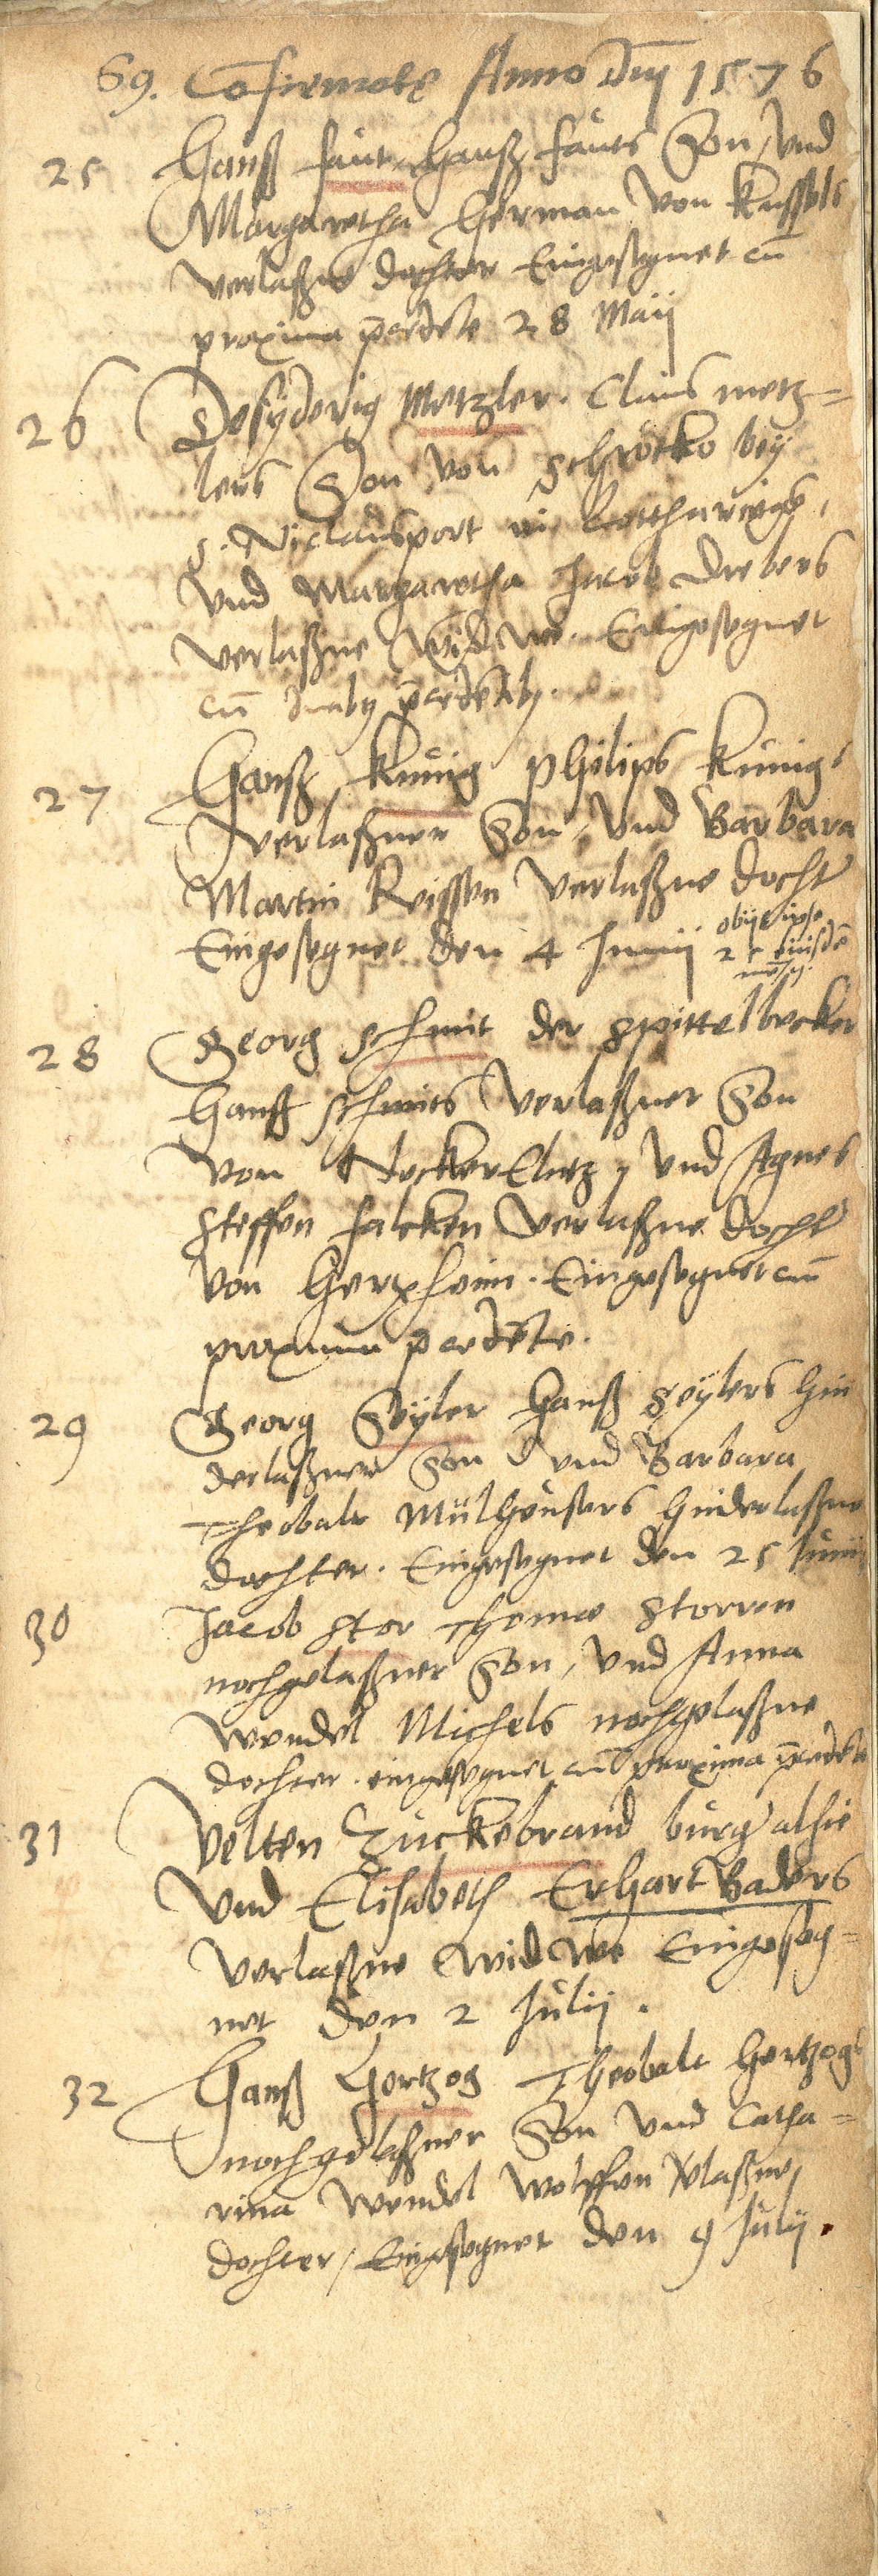 69. Cõfirmatę Anno dnj 1576
25 Hanß faut, Hanß fauts Son, Vnd
Margaretha Herman von Kussels
verlaßne dochter Eingesegnet cū
proxima p̄cedēte 28 Maij
26 Desyderig Metzler. Claus metz=
lers Son von bey
S. Niclausport in Lottharinge,
Vnd Margaretha Jacob Drebers
verlaßne Widwe. Eingesegnet
cū duabꝫ p̄cedētibꝫ.
27 Hanß Künig Philips Künigs
verlaßner Son, Vnd Barbara
Martin Reissen Verlaßne docht
Eingesegnet den 4 Junij obijt ipse
25 eiusdē
mēsis.
28 Georg schmit der Spittelbecker
Hanß schmits Verlaßner Son
Von NeckerEltz, Vnd Agnes
Steffen falcken Verlaßne docht
Von Herxheim. Eingesegnet cum
proxima p̄cedēte.
29 Georg Seyler Hanß Seylers hin
derlaßner Son Vnd Barbara
Theobalt Mülheusers hinderlaßne
dochter. Eingesegnet den 25 Junij
30 Jacob Stor Thomae Storren
nochgelaßner Son, Vnd Anna
Wendel Michels nochgelaßne
dochter. eingesegnet cū proxima p̄cedēte
31 Velten Zuckebrand burg alhie
Vnd Elisabeth Erhart Baders
Verlaßne Widwe Eingeseg=
net den 2 Julij.
32 Hanß Hertzog Theobalt Hertzogs
nochgelaßner Son Vnd Catha=
rina Wendel Wolffen v̄laßne
dochter, Eingesegnet den 9 Julij.